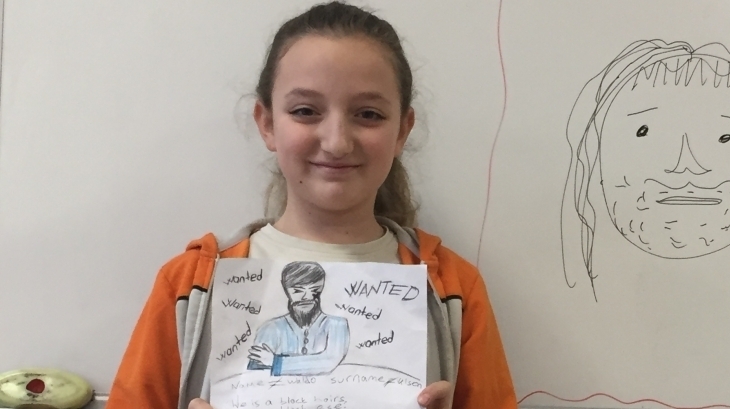 wanted
WANTED
wanted
wanted
wanted
wanted
Name ≠ Waldo surname ≠
He is a black hairs,